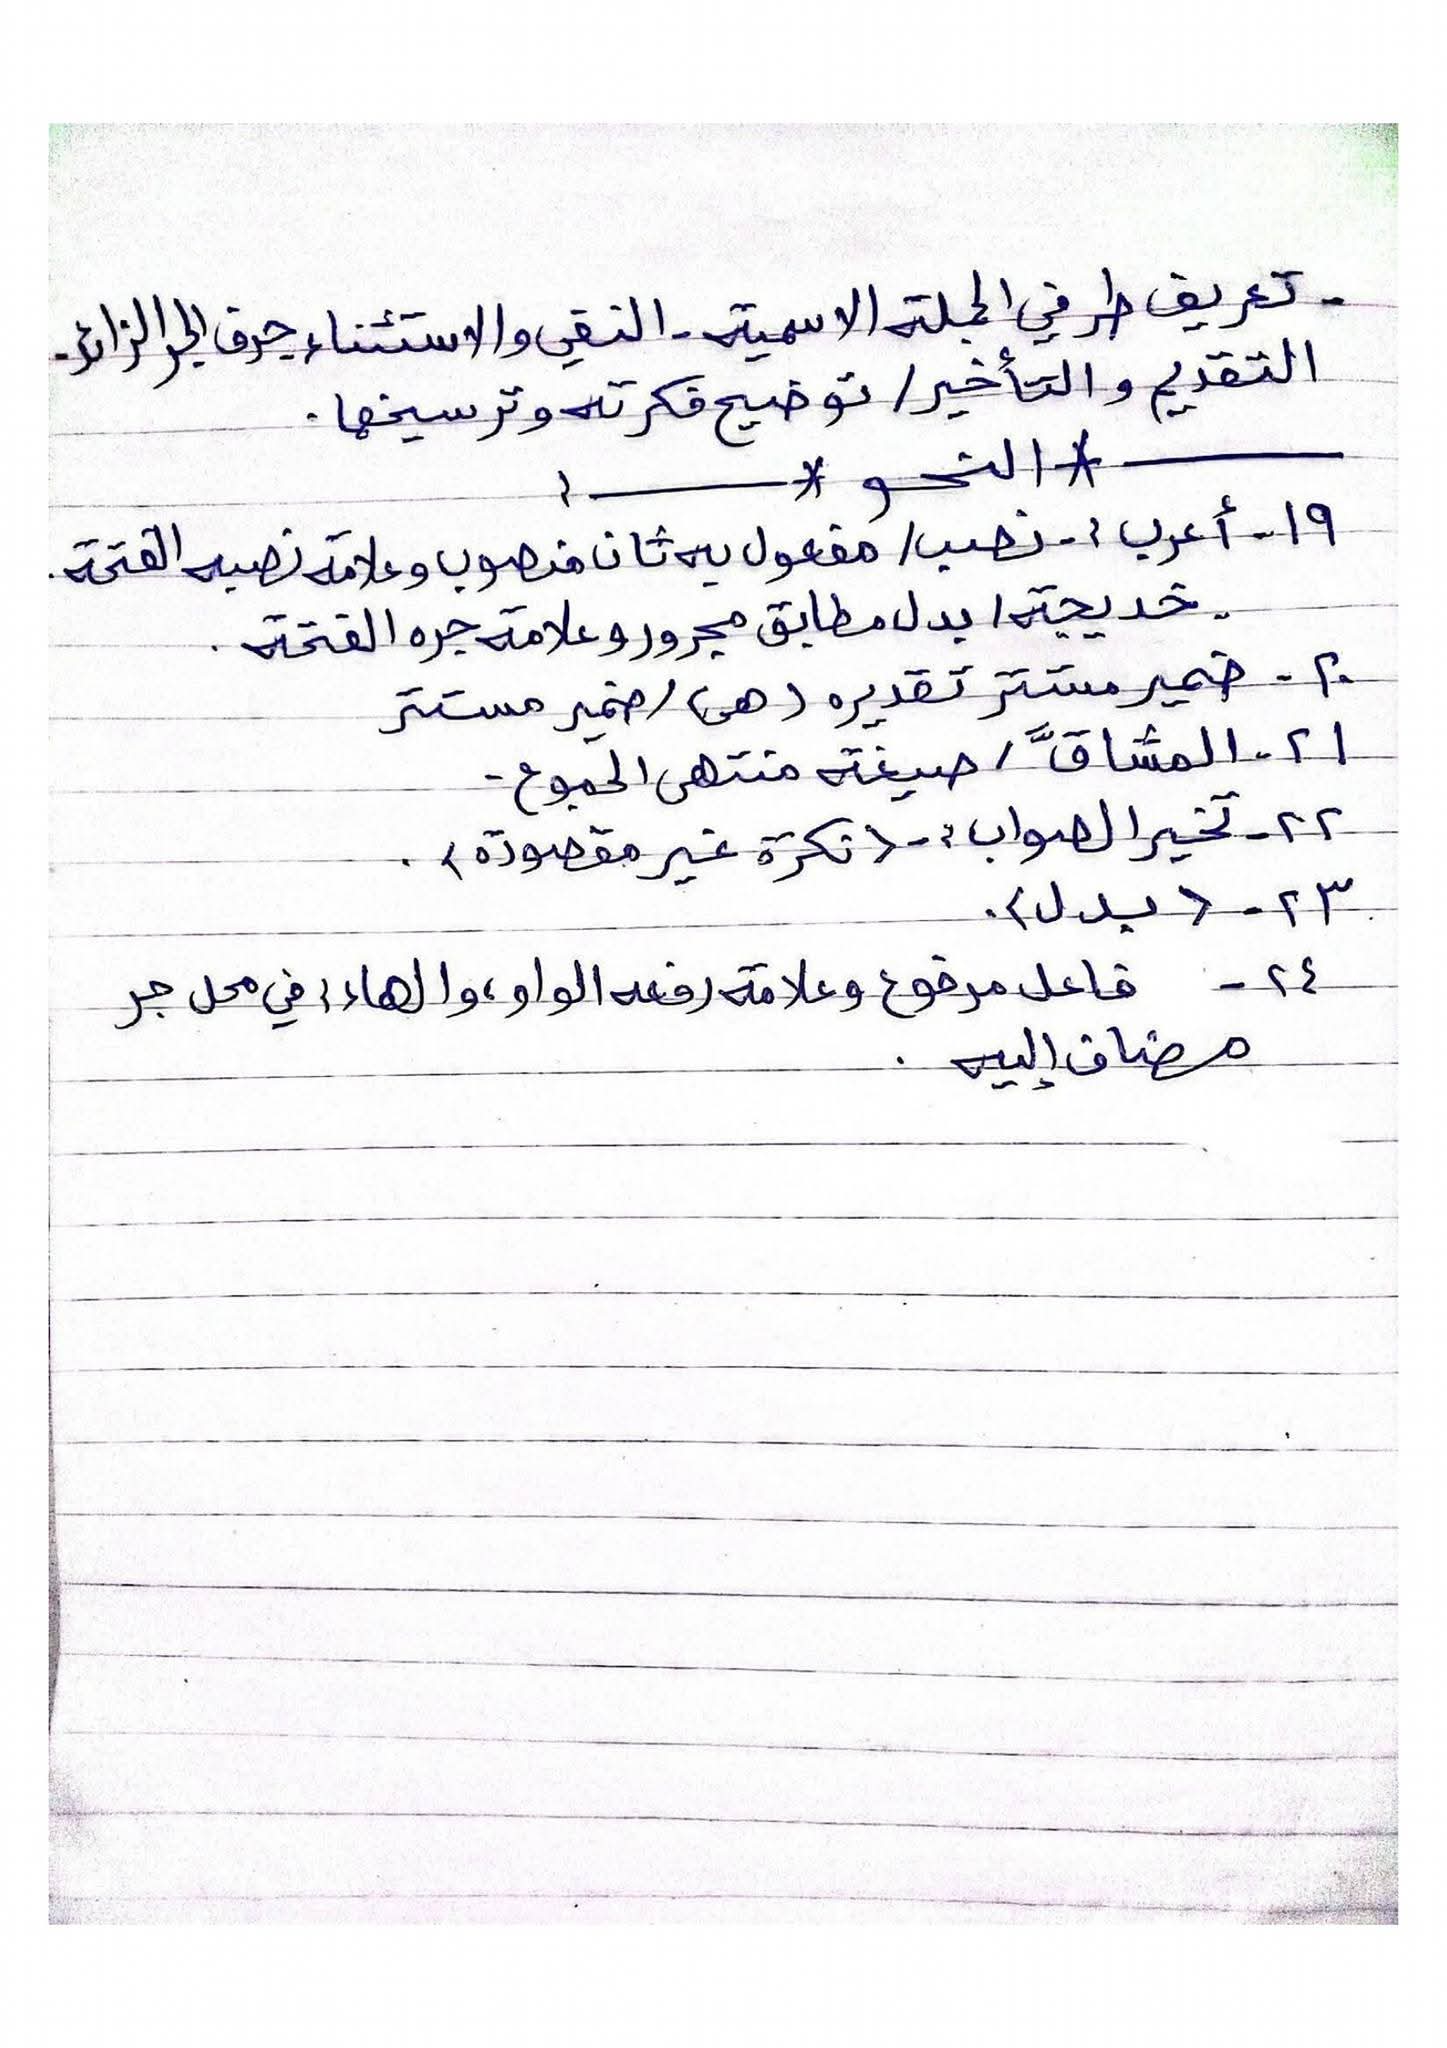 - تعريف طرفي الجملة الاسمية - النفي والاستثناء - حرف الجر الزائد -
التقديم والتأخير / توضيح فكرته وترسيخها .
* النحو *
١٩ - أعرب :- نصب / مفعول به ثان منصوب وعلامة نصبه الفتحة .
- خديجة / بدل مطابق مجرور وعلامة جره الفتحة .
٢٠ - ضمير مستتر تقديره (هي) / ضمير مستتر
٢١ - المشاقَّ / صيغة منتهى الجموع -
٢٢ - تخير الصواب :- < نكرة غير مقصودة > .
٢٣ - < بدل > .
٢٤ - فاعل مرفوع وعلامة رفعه الواو ، والهاء : في محل جر
مضاف إليه .